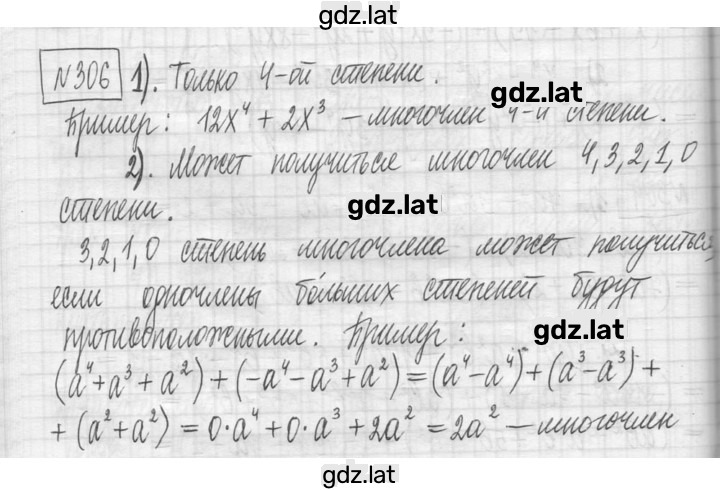 gdz.lat
№306 1). Только 4-ой степени.
gdz.lat
Пример: 12x⁴ + 2x³ – многочлен 4-й степени.
2). Может получиться многочлен 4,3,2,1,0
степени.
gdz.lat
3,2,1,0 степень многочлена может получиться,
если одночлены бо́льших степеней будут
противоположными. Пример:
gdz.lat
(a⁴+a³+a²)+(-a⁴-a³+a²)=(a⁴-a⁴)+(a³-a³)+
+(a²+a²)=0·a⁴+0·a³+2a²=2a² – многочлен
gdz.lat